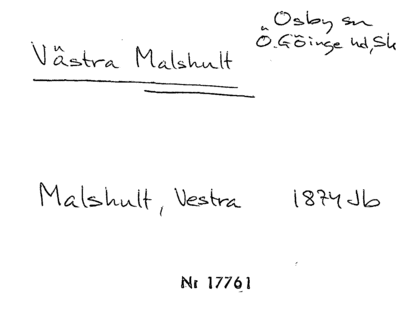 Osby sn
Ö. Göinge hd, Sk
Västra Malshult
Malshult, Vestra 1874 Jb
Nr 17761